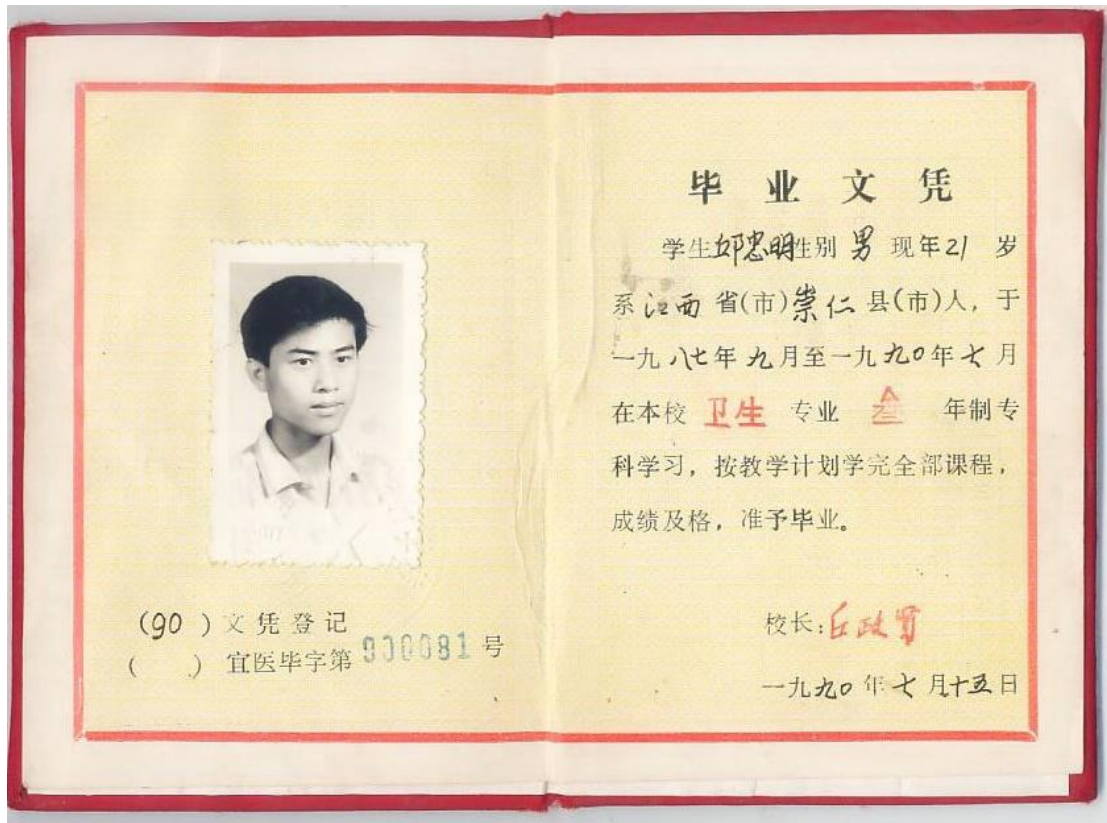 毕业文凭
学生邱忠明性别 男 现年21 岁
系江西省(市)崇仁县(市)人，于
一九八七年九月至一九九〇年七月
在本校 卫生 专业 叁 年制专
科学习，按教学计划学完全部课程，
成绩及格，准予毕业。
校长：丘政贤
一九九〇年七月十五日
(90)文凭登记
(　)宜医毕字第900081号